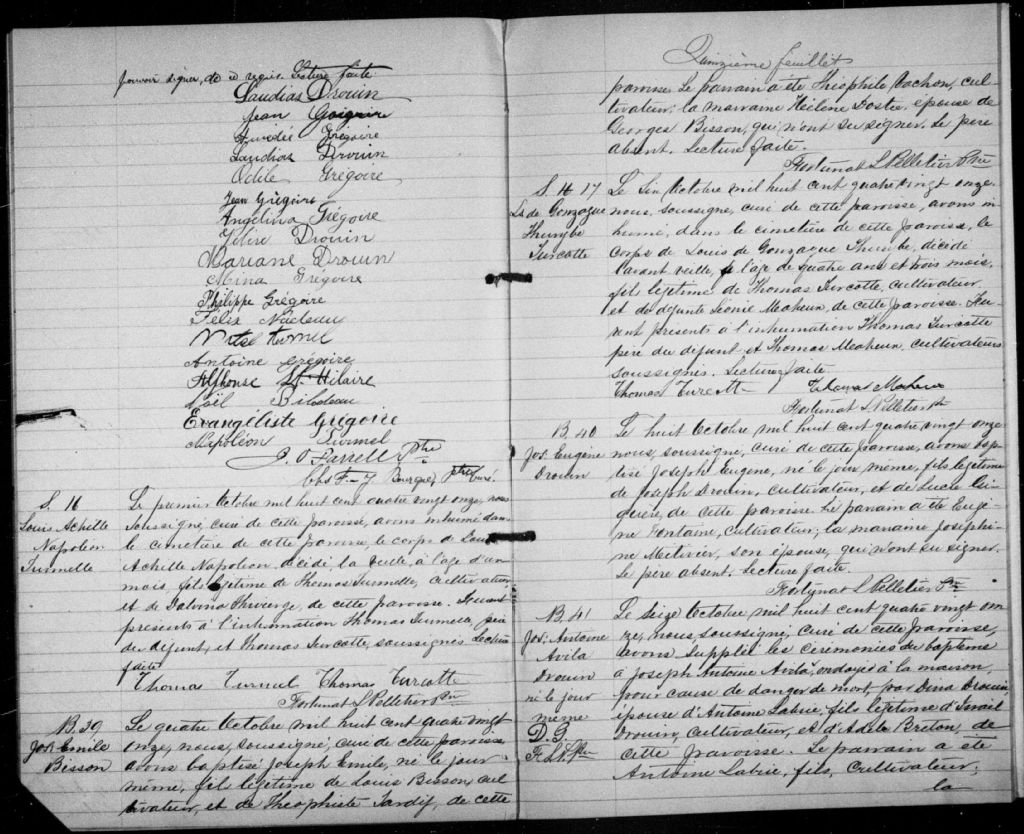 pouvoir signer, de ce requis. Lecture faite
Laudias Drouin
Jean Grégoire
Amédée Grégoire
Laudias Drouin
Odile Grégoire
Jean Grégoire
Angelina Grégoire
Drouin
Mariane Drouin
Mina Grégoire
Philippe Grégoire
Félix Nadeau
Vital Turmel
Antoine Grégoire
Alphonse St-Hilaire
Noël Bilodeau
Evangéliste Grégoire
Napoléon Turmel
J. O Farrell Ptre
Chs F-J Bourque, ptre curé.
S. 16
Louis Achille
Napoleon
Turmelle
Le premier Octobre mil huit cent quatre vingt onze, nous
soussigné, curé de cette paroisse, avons inhumé dans
le cimetière de cette paroisse, le corps de Louis
Achille Napoleon, décédé la veille, à l'age d'un
mois, fils légitime de Thomas Turmelle, cultivateur
et de Thivierge, de cette paroisse. Furent
presents à l'inhumation Thomas Turmelle, père
du défunt, et Thomas Turcotte, soussignés. Lecture
faite.
Thomas Turmel Thomas Turcotte
Fortunat L Pelletier Ptre
B. 39
Jos. Emile
Bisson
Le quatre Octobre mil huit cent quatre vingt
onze, nous, soussigné, curé de cette paroisse
avons baptisé Joseph Emile, né le jour
même, fils légitime de Louis Bisson, cul-
tivateur, et de Théophiste Tardif, de cette
Quinzième feuillet
paroisse. Le parrain a été Théophile Vachon, cul-
tivateur; la marraine Hélène Dostie, épouse de
Georges Bisson, qui n'ont su signer. Le père
absent. Lecture faite.
Fortunat L Pelletier Ptre
S. 17
Ls de Gonzague
Thuribe
Turcotte
Le Six Octobre mil huit cent quatre vingt onze
nous, soussigné, curé de cette paroisse, avons in-
humé, dans le cimetière de cette paroisse, le
corps de Louis de Gonzague Thuribe, décédé
l'avant veille, à l'age de quatre ans et trois mois,
fils légitime de Thomas Turcotte, cultivateur
et de défunte Léonie Maheux, de cette paroisse. Fu-
rent présents à l'inhumation Thomas Turcotte
père du défunt, et Thomas Maheux, cultivateurs
soussignés. Lecture faite.
Thomas Turcott Thomas Maheux
Fortunat L Pelletier Ptre
B. 40
Jos. Eugène
Drouin
Le huit Octobre mil huit cent quatre vingt onze
nous, soussigné, curé de cette paroisse, avons bap-
tisé Joseph Eugène, né le jour même, fils légitime
de Joseph Drouin, cultivateur, et de Lucie Gi-
guère, de cette paroisse. Le parrain a été Eugè-
ne Fontaine, cultivateur, la marraine Joséphi-
ne Métivier, son épouse, qui n'ont su signer.
Le père absent. Lecture faite.
Fortunat L Pelletier Ptre
B. 41
Jos. Antoine
Avila
Drouin
né le jour
même
D. G.
F. L. P. Ptre
Le Seize Octobre mil huit cent quatre vingt on-
ze, nous, soussigné, curé de cette paroisse,
avons supplié les cérémonies du baptême
à Joseph Antoine Avila, ondoyé à la maison,
pour cause de danger de mort, par Dina Drouin
épouse d'Antoine Labrie, fils légitime d'Israël
Drouin, cultivateur, et d'Adèle Breton, de
cette paroisse. Le parrain a été
Antoine Labrie, fils, cultivateur;
la